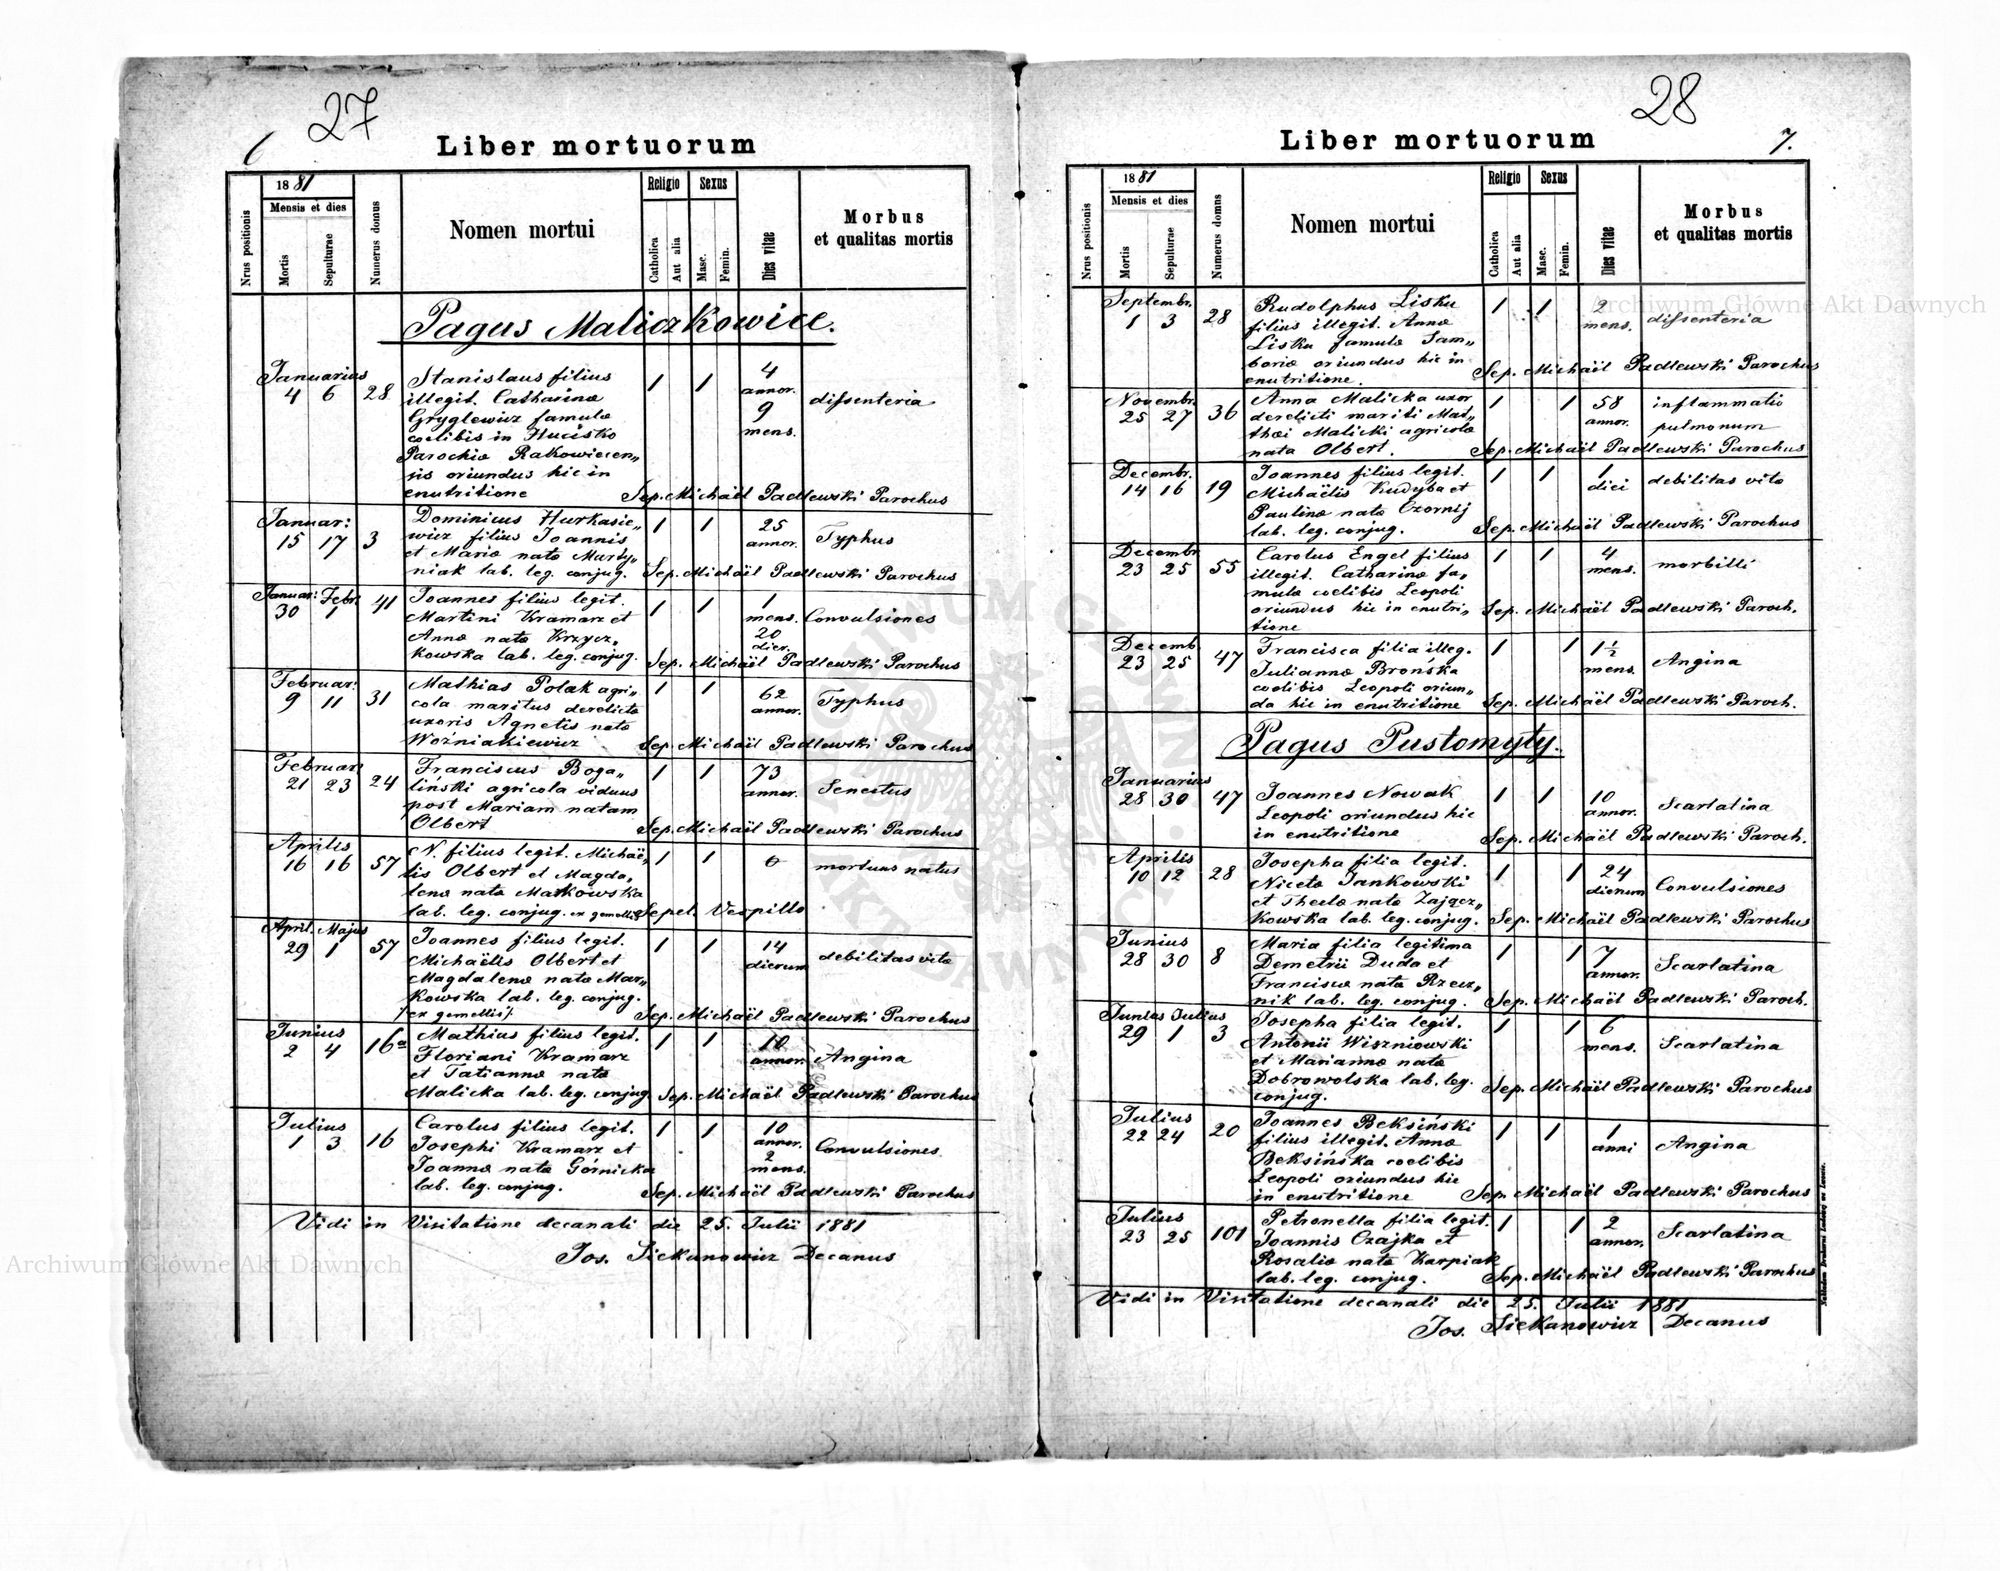 27
6
Liber mortuorum
Nrus positionis
1881
Mensis et dies
Mortis
Sepulturae
Numerus domus
Nomen mortui
Religio
Catholica
Aut alia
Sexus
Masc.
Femin.
Dies vitae
Morbus
et qualitas mortis
Pagus Maliczkowice.
Januarius
4 6 28
Stanislaus filius
illegit. Catharinæ
Gryglewicz famulæ
cœlibis in Hucisko
Parochiæ Rakowiecen„
sis oriundus hic in
enutritione
1 1
4
annor.
9
mens.
dissenteria
Sep. Michaël Padlewski Parochus
Januar:
15 17 3
Dominicus Hurkasie„
wicz filius Joannis
et Mariæ natæ Murdy„
niak lab. leg. conjug.
1 1
25
annor.
Typhus
Sep. Michaël Padlewski Parochus
Januar: Febr.
30 1 41
Joannes filius legit.
Martini Kramarz et
Annæ natæ Krzycz„
kowska lab. leg. conjug.
1 1
1
mens.
20
dier.
Convulsiones
Sep. Michaël Padlewski Parochus
Februar:
9 11 31
Mathias Polak agri„
cola maritus derelictæ
uxoris Agnetis natæ
Woźniakiewicz
1 1
62
annor.
Typhus
Sep. Michaël Padlewski Parochus
Februar:
21 23 24
Franciscus Boga„
liński agricola viduus
post Mariam natam
Olbert
1 1
73
annor.
Senectus
Sep. Michaël Padlewski Parochus
Aprilis
16 16 57
N. filius legit. Michaë„
lis Olbert et Magda„
lenæ natæ Markowska
lab. leg. conjug. ex gemellis
1 1
0
mortuus natus
Sepel. Vespillo
April. Majus
29 1 57
Joannes filius legit.
Michaëlis Olbert et
Magdalenæ natæ Mar„
kowska lab. leg. conjug.
/ex gemellis/.
1 1
14
dierum
debilitas vitæ
Sep. Michaël Padlewski Parochus
Junius
2 4 16a
Mathias filius legit.
Floriani Kramarz
et Tatiannæ natæ
Malicka lab. leg. conjug.
1 1
10
annor.
Angina
Sep. Michaël Padlewski Parochus
Julius
1 3 16
Carolus filius legit.
Josephi Kramarz et
Joannæ natæ Górnicka
lab. leg. conjug.
1 1
10
annor.
2
mens.
Convulsiones
Sep. Michaël Padlewski Parochus
Vidi in Visitatione decanali die 25. Julii 1881
Jos. Siekanowicz Decanus
28
7.
Liber mortuorum
Nrus positionis
1881
Mensis et dies
Mortis
Sepulturae
Numerus domus
Nomen mortui
Religio
Catholica
Aut alia
Sexus
Masc.
Femin.
Dies vitae
Morbus
et qualitas mortis
Septembr.
1 3 28
Rudolphus Lisku
filius illegit. Annæ
Lisku famulæ Sam„
boriæ oriundus hic in
enutritione.
1 1
2
mens.
dissenteria
Sep. Michaël Padlewski Parochus
Novembr.
25 27 36
Anna Malicka uxor
derelicti mariti Mat„
thæi Malicki agricolæ
nata Olbert.
1 1
58
annor.
inflammatio
pulmonum
Sep. Michaël Padlewski Parochus
Decembr.
14 16 19
Joannes filius legit.
Michaëlis Kudyba et
Paulinæ natæ Czornij
lab. leg. conjug.
1 1
1
diei
debilitas vitæ
Sep. Michaël Padlewski Parochus
Decembr.
23 25 55
Carolus Engel filius
illegit. Catharinæ fa„
mulæ cœlibis Leopoli
oriundus hic in enutri„
tione
1 1
4
mens.
morbilli
Sep. Michaël Padlewski Paroch.
Decemb.
23 25 47
Francisca filia illeg.
Juliannæ Brońska
cœlibis Leopoli oriun„
da hic in enutritione
1 1
1½
mens.
Angina
Sep. Michaël Padlewski Paroch.
Pagus Pustomyty.
Januarius
28 30 47
Joannes Nowak
Leopoli oriundus hic
in enutritione
1 1
10
annor.
Scarlatina
Sep. Michaël Padlewski Paroch.
Aprilis
10 12 28
Josepha filia legit.
Nicetæ Jankowski
et Theclæ natæ Zającz„
kowska lab. leg. conjug.
1 1
24
dierum
Convulsiones
Sep. Michaël Padlewski Parochus
Junius
28 30 8
Maria filia legitima
Demetrii Duda et
Franciscæ natæ Rzecz„
nik lab. leg. conjug.
1 1
7
annor.
Scarlatina
Sep. Michaël Padlewski Paroch.
Junius Julius
29 1 3
Josepha filia legit.
Antonii Wiszniowski
et Mariannæ natæ
Dobrowolska lab. leg.
conjug.
1 1
6
mens.
Scarlatina
Sep. Michaël Padlewski Parochus
Julius
22 24 20
Joannes Beksiński
filius illegit. Annæ
Beksińska cœlibis
Leopoli oriundus hic
in enutritione
1 1
1
anni
Angina
Sep. Michaël Padlewski Parochus
Julius
23 25 101
Petronella filia legit.
Joannis Czajka et
Rosaliæ natæ Karpiak
lab. leg. conjug.
1 1
2
annor.
Scarlatina
Sep. Michaël Padlewski Parochus
Vidi in Visitatione decanali die 25. Julii 1881
Jos. Siekanowicz Decanus
Archiwum Główne Akt Dawnych
Archiwum Główne Akt Dawnych
ARCHIWUM GŁÓWNE AKT DAWNYCH